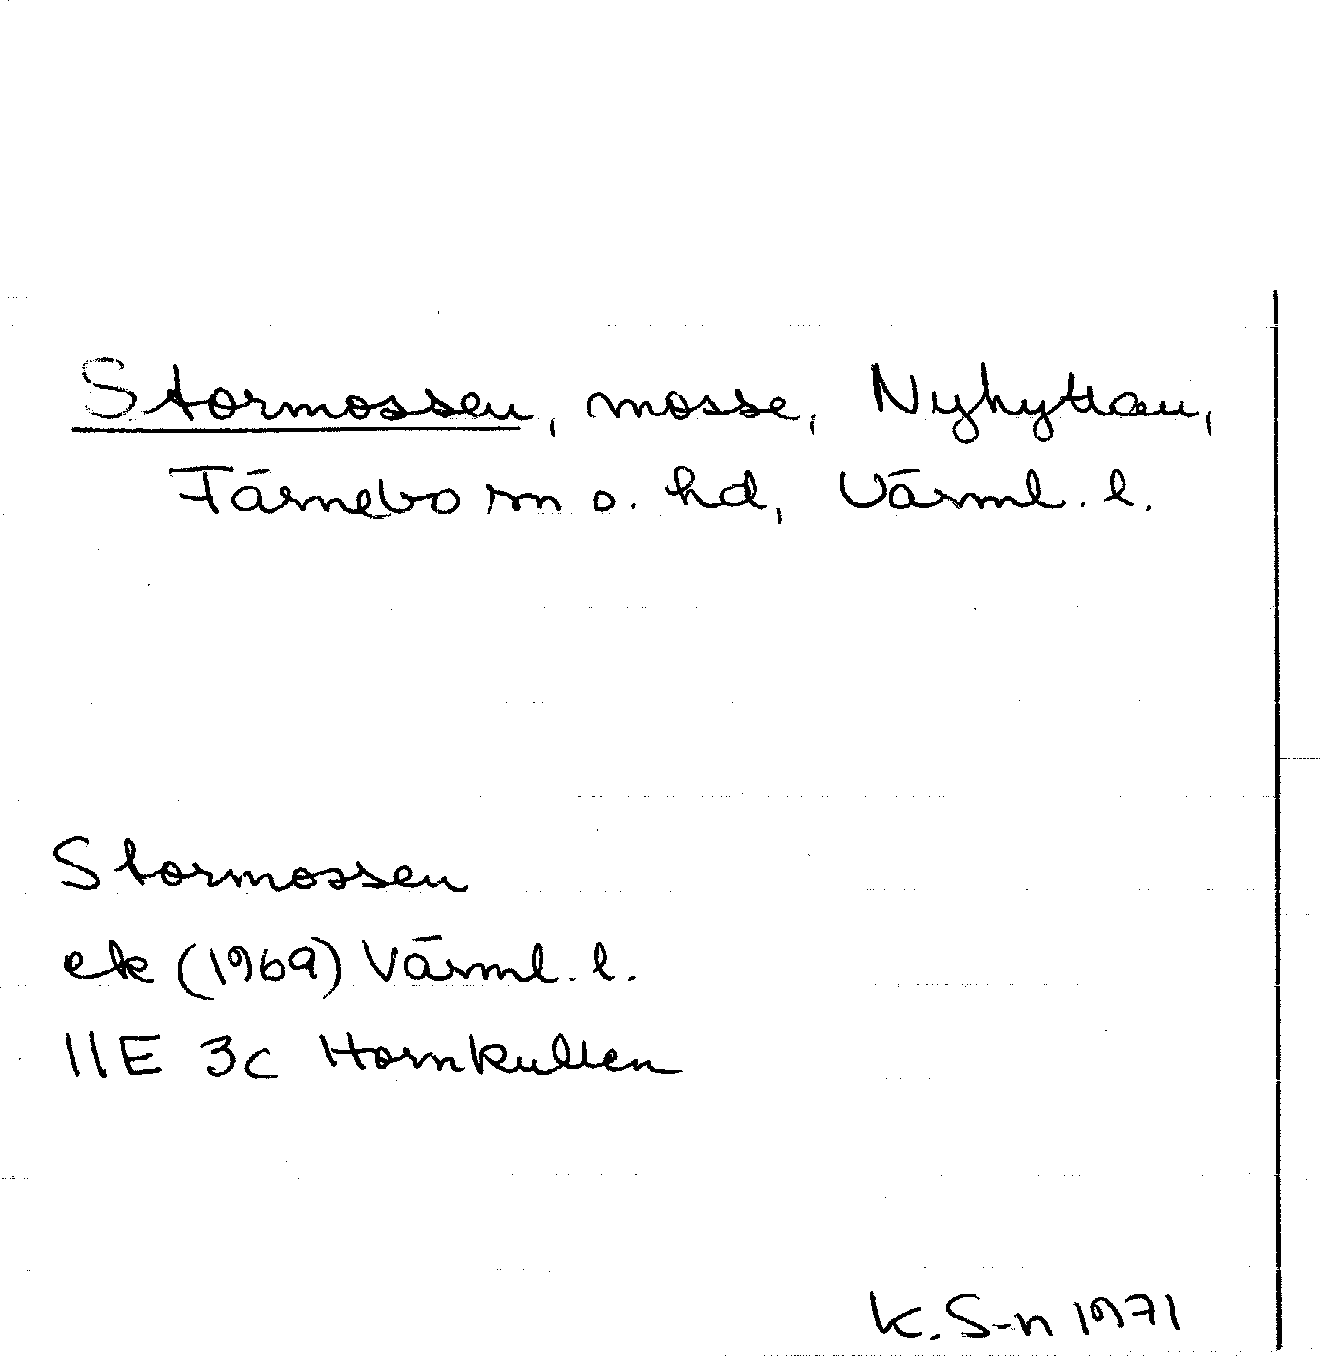 Stormossen, mosse, Nyhyttan,
Färnebo sn o. hd, Värml. l.
Stormossen
ek (1969) Värml. l.
11E 3c Hornkullen
K. S-n 1971